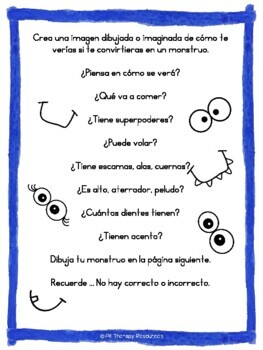 Crea una imagen dibujada o imaginada de cómo te
verías si te convirtieras en un monstruo.
¿Piensa en cómo se veró?
¿Qué va a comer?
¿Tiene superpoderes?
¿Puede volar?
¿Tiene escamas, alas, cuernos?
¿Es alto, aterrador, peludo?
¿Cuántos dientes tienen?
¿Tienen acento?
Dibuja tu monstruo en la página siguiente.
Recuerde ... No hay correcto o incorrecto.
Therapy Resources